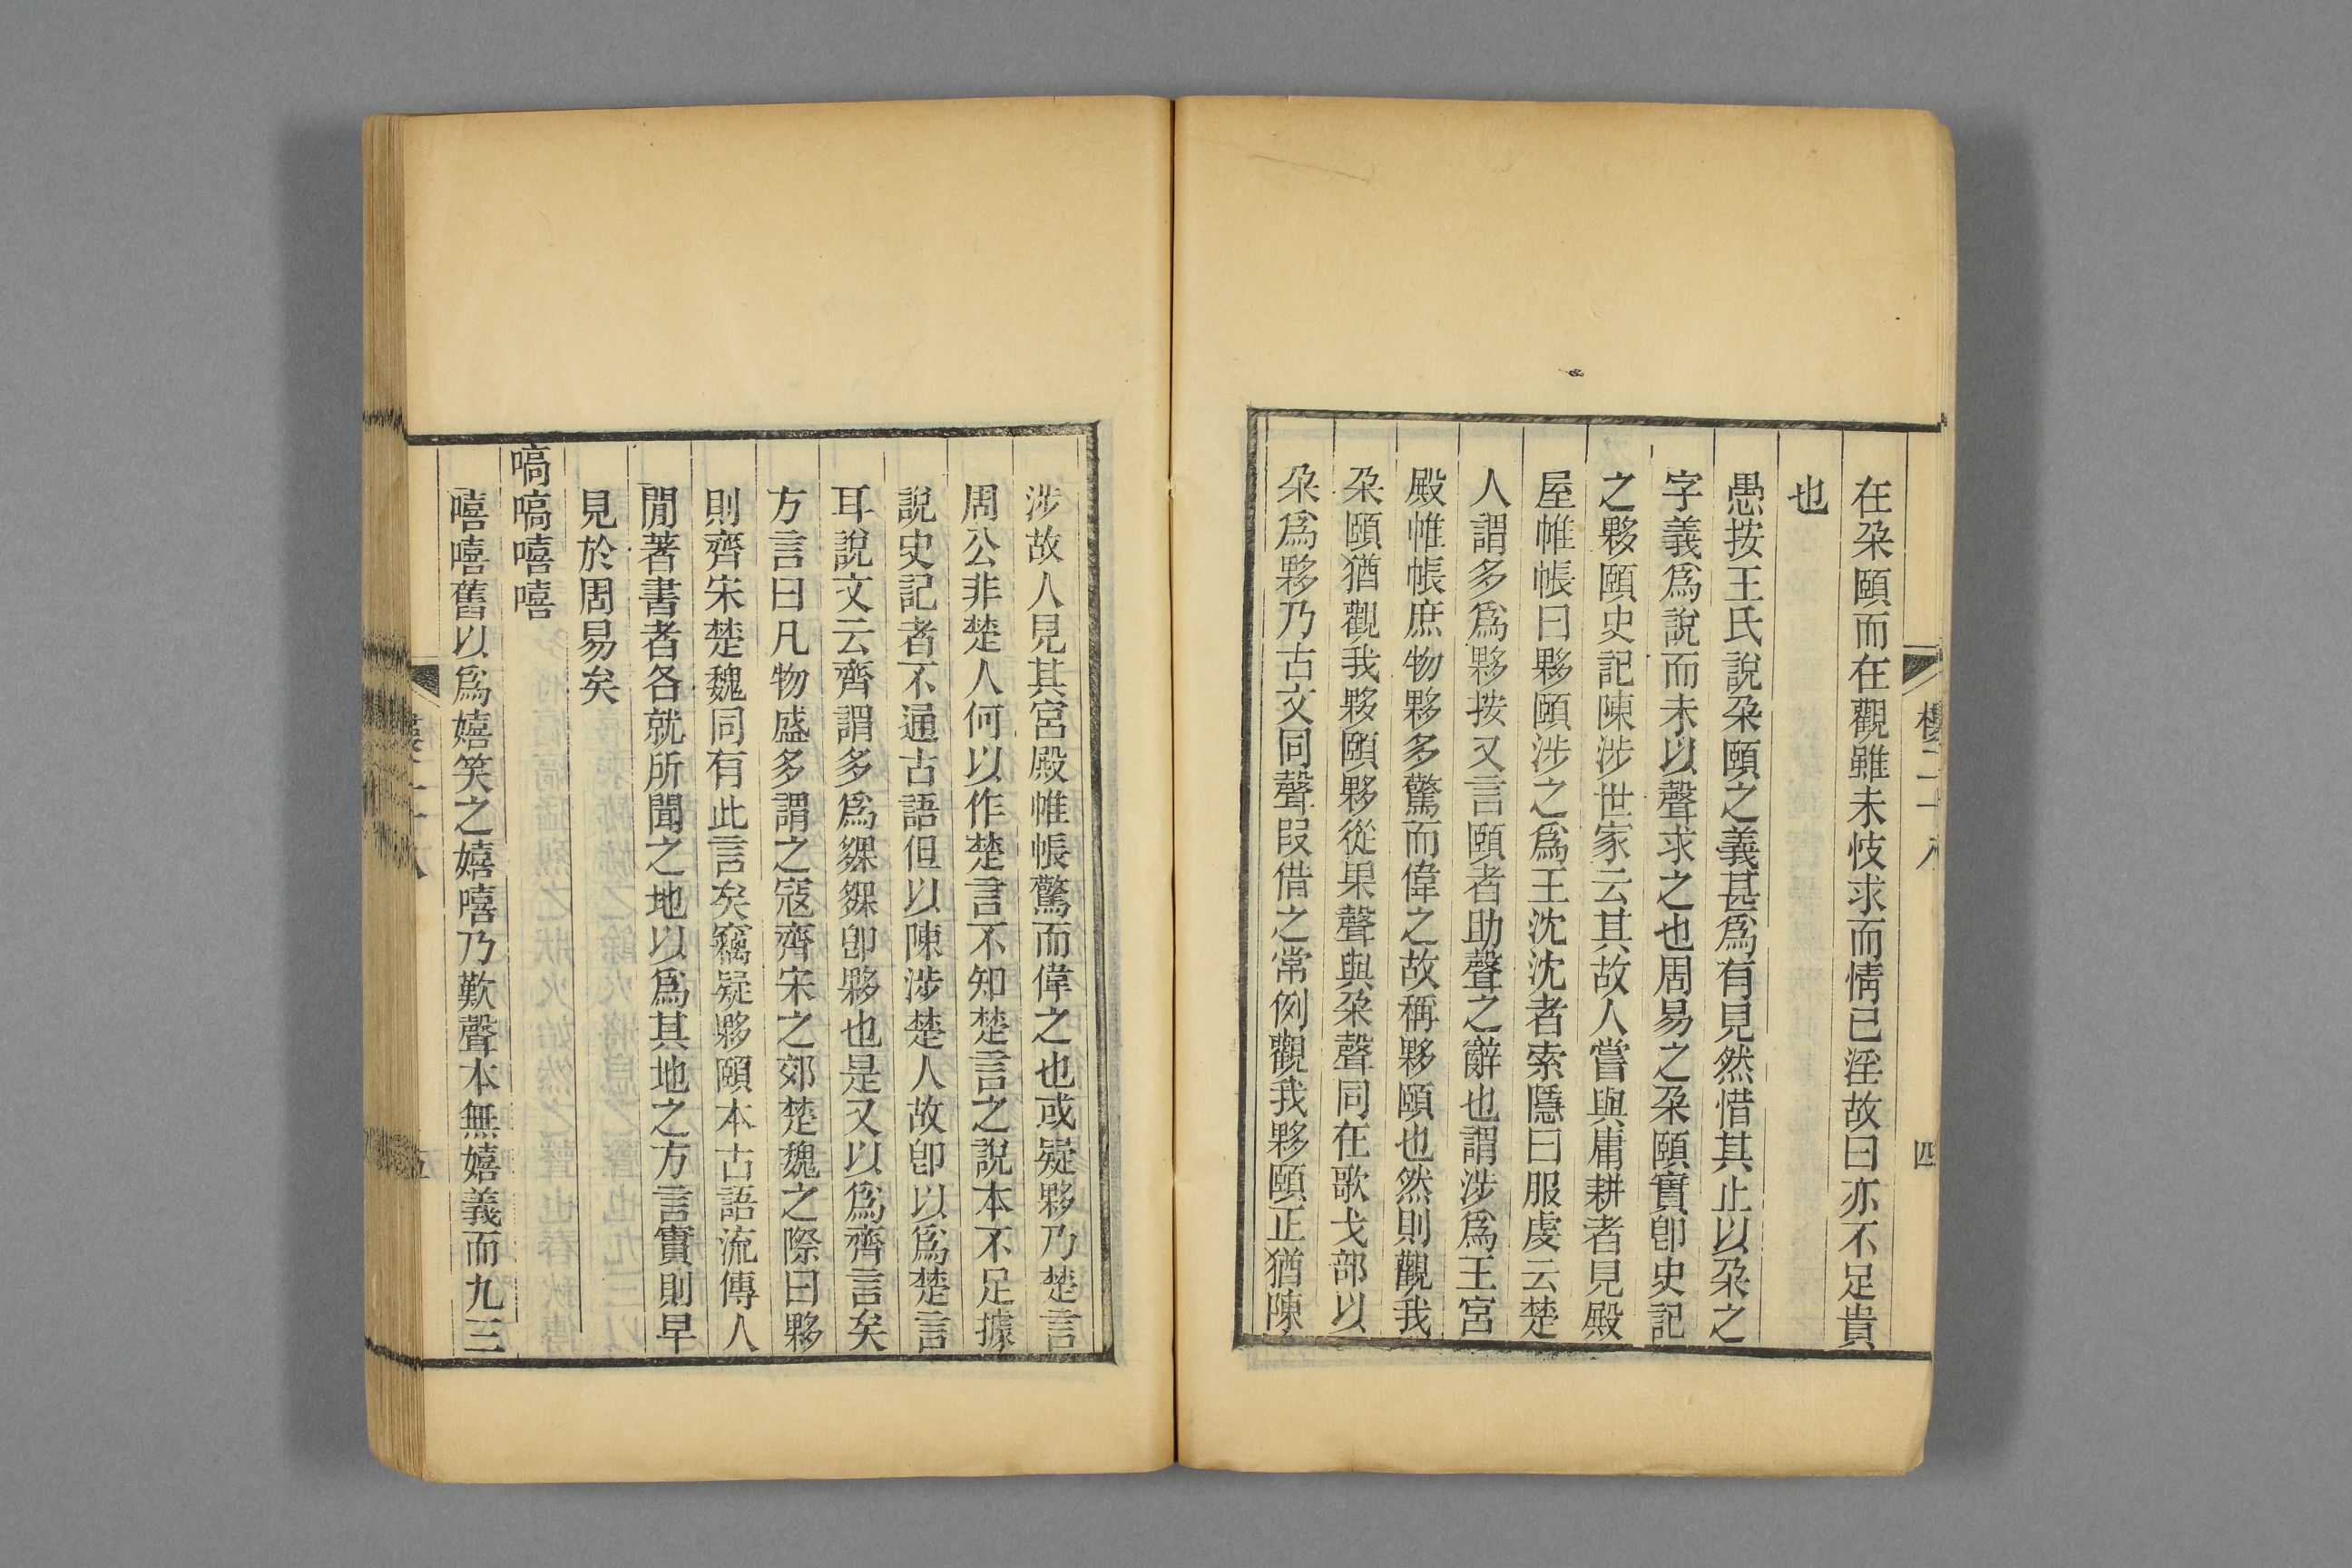 在朶頤而在觀雖未忮求而情已淫故曰亦不足貴
也
愚按王氏說朶頤之義甚爲有見然惜其止以朶之
字義爲說而未以聲求之也周易之朶頤實卽史記
之夥頤史記陳涉世家云其故人嘗與庸耕者見殿
屋帷帳曰夥頤涉之爲王沈沈者索隱曰服虔云楚
人謂多爲夥按又言頤者助聲之辭也謂涉爲王宮
殿帷帳庶物夥多驚而偉之故稱夥頤也然則觀我
朶頤猶觀我夥頤夥從果聲與朶聲同在歌戈部以
朶爲夥乃古文同聲叚借之常例觀我夥頤正猶陳
四
涉故人見其宮殿帷帳驚而偉之也或疑夥乃楚言
周公非楚人何以作楚言不知楚言之說本不足據
說史記者不通古語但以陳涉楚人故卽以爲楚言
耳說文云齊謂多爲夥夥卽夥也是又以爲齊言矣
方言曰凡物盛多謂之寇齊宋之郊楚魏之際曰夥
則齊宋楚魏同有此言矣竊疑夥頤本古語流傳人
閒著書者各就所聞之地以爲其地之方言實則早
見於周易矣
嗃嗃嘻嘻
嘻嘻舊以爲嬉笑之嬉嘻乃歎聲本無嬉義而九三
五